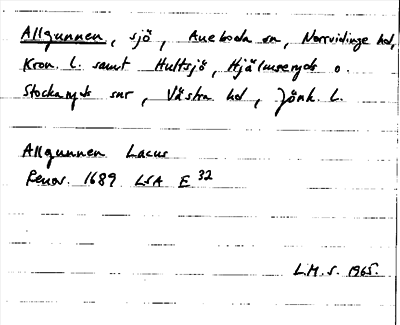 Allgunnen, sjö, Aneboda sn, Norrvidinge hd,
Kron. l. samt Hultsjö, Hjälmseryds o.
Stockaryds snr, Västra hd, Jönk. l.
Allgunnen Lacus
Renov. 1689 LSA E 32
L.M.S. 1965.